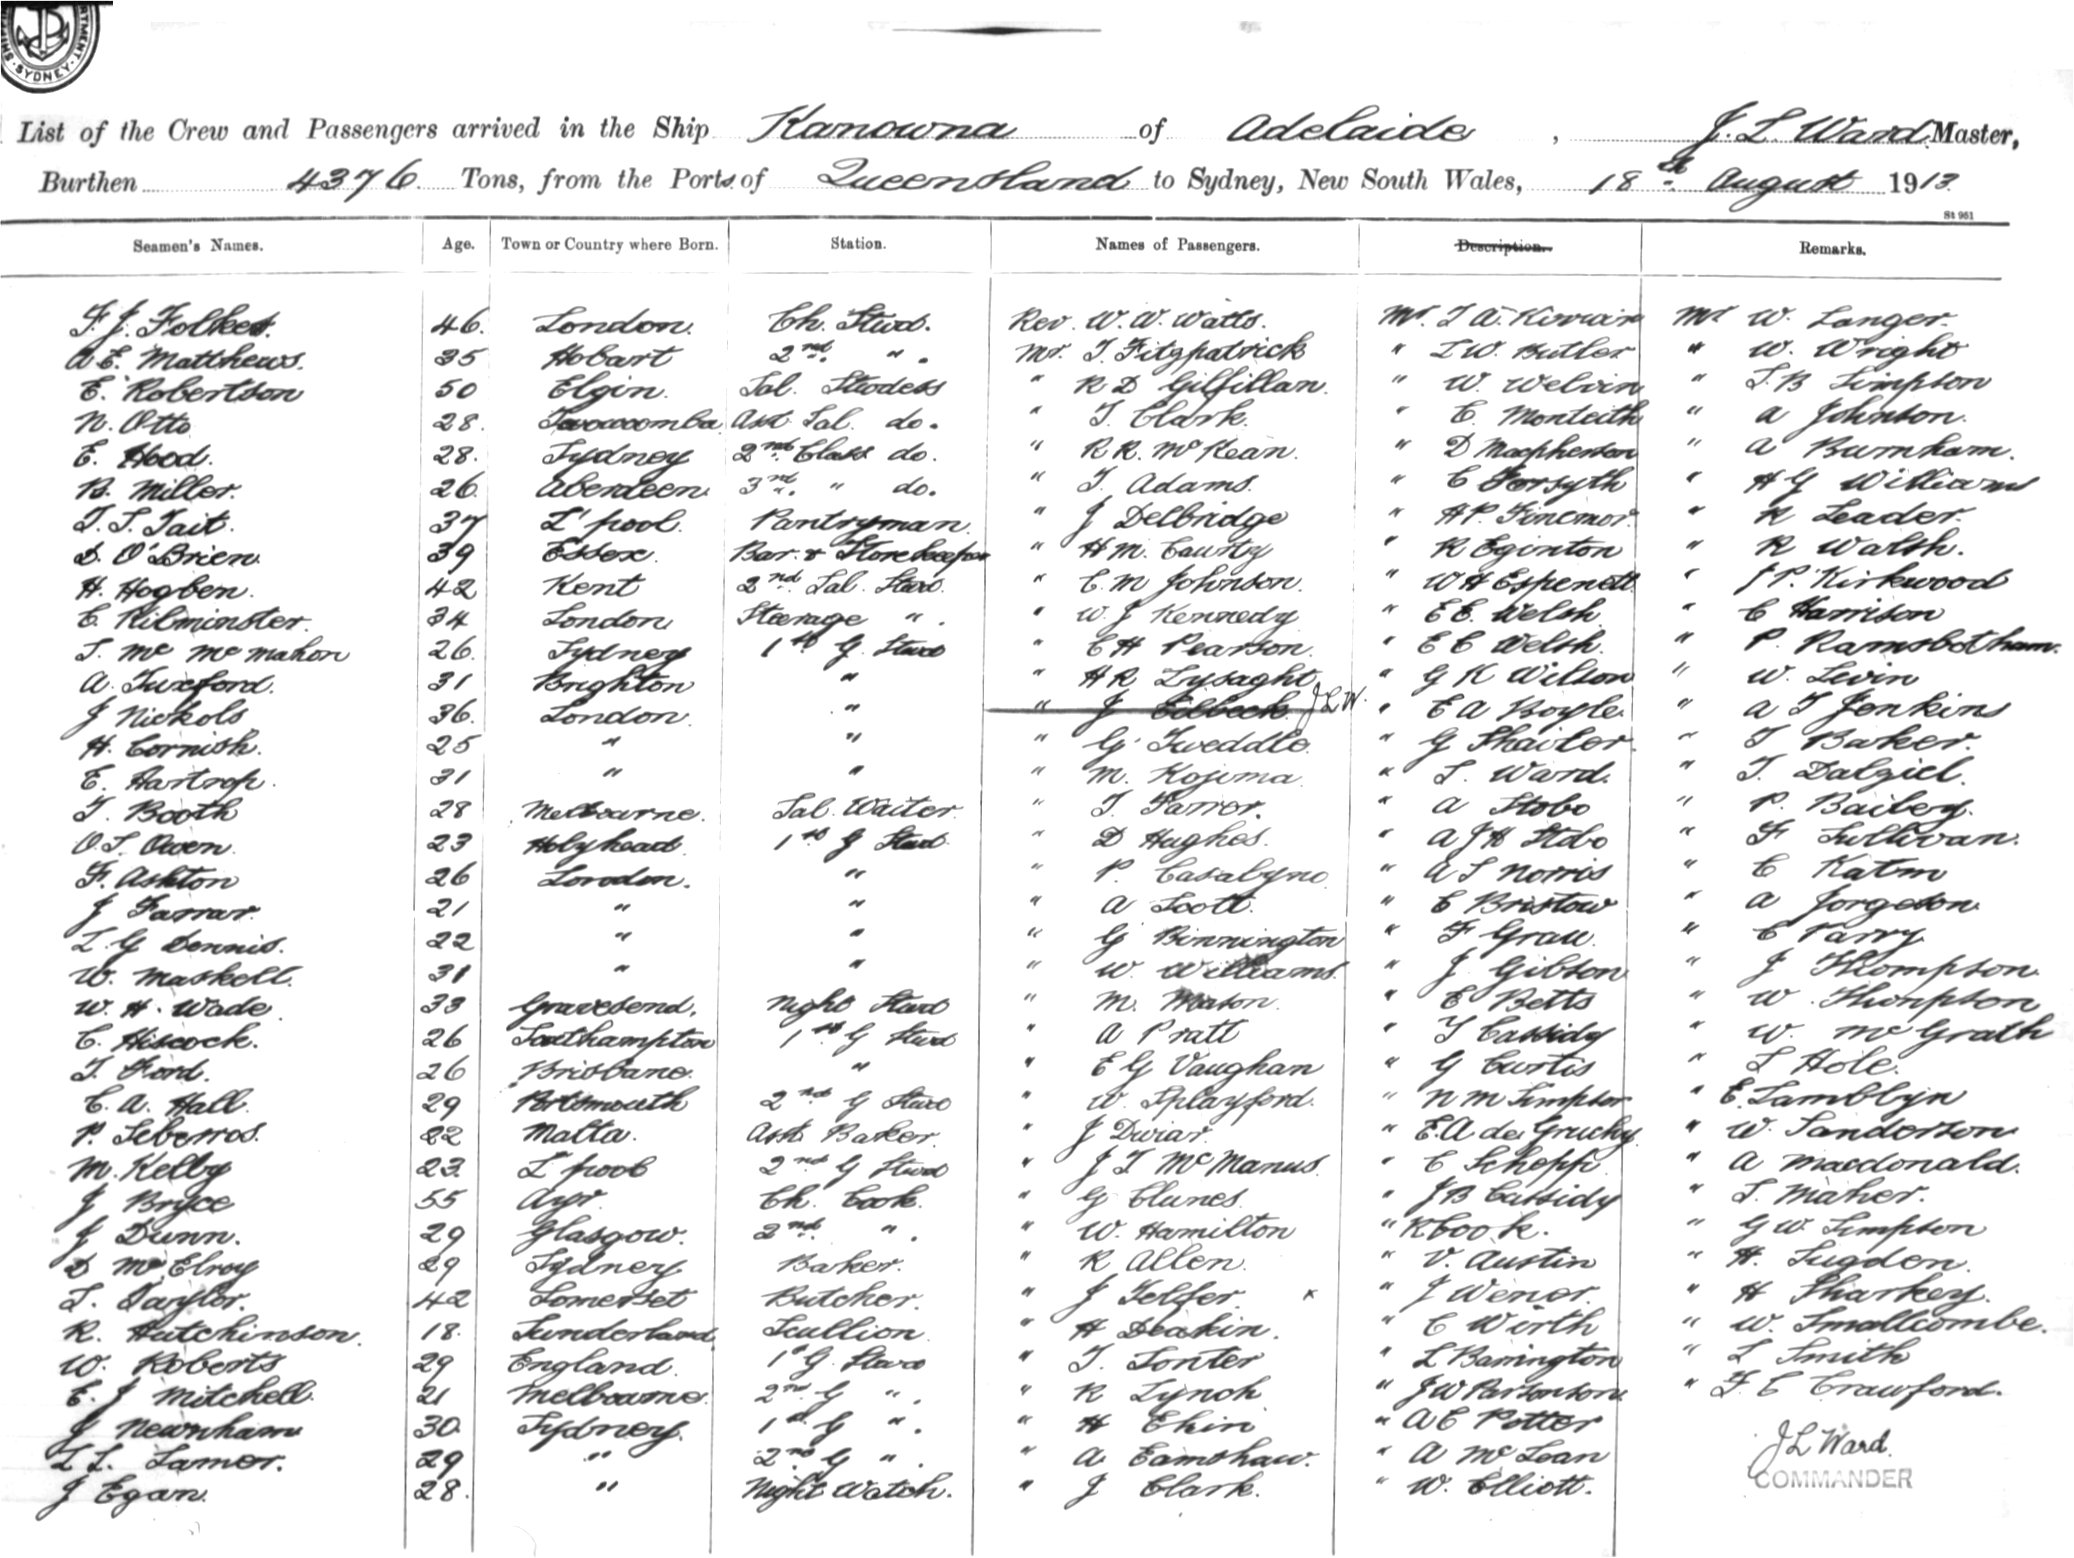 SYDNEY
List of the Crew and Passengers arrived in the Ship Kanowna of Adelaide, J. L. Ward Master,
Burthen 4376 Tons, from the Ports of Queensland to Sydney, New South Wales, 18th August 1913
St 961
Seamen's Names. Age. Town or Country where Born. Station. Names of Passengers. Description. Remarks.
F. J. Folkes. 46. London. Ch. Stwd. Rev. W. W. Watts. Mr. T. A. Mr W. Langer.
A E. Matthews. 35 Hobart 2nd " . Mr. T. Fitzpatrick " I W. Butler " W. Wright
E. Robertson 50 Elgin. Sal. Stwdess " R D Gilfillan. " W. Welvin " S. B Simpson
N. Otto 28. Toowoomba Asst Sal. do. " T. Clark. " C. Monteith " A Johnson.
E. Hood. 28. Sydney 2nd Class do. " R R. McKean. " D Macpherson " A Burnham.
B. Miller. 26. Aberdeen. 3rd. " do. " T. Adams. " C Forsyth " H G Williams
T. S. Tait. 37 L'pool. Pantryman. " J Delbridge " H P. Finemor. " R Leader.
D. O'Brien. 39 Essex. Bar. & Storekeeper " H M. " R Eginton " R Walsh.
H. Hogben. 42 Kent 2nd. Sal. Stwd. " C. M Johnson. " W H Espenett. " J P. Kirkwood
C. Kilminster. 34 London Steerage " . " W. J Kennedy " E E. Welsh. " C Harrison
T. Mc McMahon 26. Sydney 1st G. Stwd " C H Pearson. " E C Welsh. " P. Ramsbotham.
A. Tuxford. 31 Brighton " " H R Lysaght " G K Wilson " W. Levin
J Nickols 36. London. " " J Eilbeck. J L W. " E A Boyle. " A T Jenkins
H. Cornish. 25 " " " G Tweddle. " G Shailer. " T Baker.
E. Hartrop. 31 " " " M. Kojima " S. Ward. " T. Dalziel.
T. Booth 28 Melbourne. Sal. Waiter " T. Farror. " A Stobo " P. Bailey.
O S. Owen. 23 Holyhead. 1st G Stwd. " D Hughes. " A J H Stobo " F Sullivan.
F. Ashton 26 London. " " P. " A S Norris " C Katm
J Farrar. 21 " " " A Scott. " C Bristow " A Jorgeson
L. G Dennis. 22 " " " G Binnington " F Grau. " C Parry
W. Maskell. 31 " " " W. Williams. " J Gibson " J Thompson
W. H. Wade 33 Gravesend. Night Stwd " M. Mason. " E Betts " W. Thompson
C. Hiscock. 26 Southampton 1st G Stwd " A Pratt " T Cassidy " W. McGrath
T. Ford. 26 Brisbane. " " E G Vaughan " G Curtis " L Hole.
C. A. Hall. 29 Portsmouth 2nd G Stwd " W. Splayford. " N M Simpson " E. Lamblyn
P. Seberros. 22 Malta. Asst Baker. " J Dwiar. " E. A de Gruchy " W. Sanderson
M. Kelby 23 L'pool 2nd G Stwd " J T McManus. " C Schopp " A Macdonald.
J Bryce 55 Ayr. Ch. Cook. " G Clunes. " J B Cassidy " T. Maher.
J Dunn. 29 Glasgow. 2nd. " . " W. Hamilton " R Cook. " G W Simpson
D McElroy 29 Sydney Baker. " R Allen. " V. Austin " H. Sugden.
S. Taylor. 42 Somerset Butcher. " J Telfer. x " J Wener. " H Sharkey.
R. Hutchinson. 18. Sunderland Scullion. " H Deakin. " C Wirth " W. Smallcombe.
W. Roberts 29 England. 1st G. Stwd " T. Sonter " L Barrington " L Smith
E. J Mitchell. 21 Melbourne. 2nd G " . " R Lynch " J W Parsonson. " F. C Crawford.
J Newnham 30. Sydney. 1st G " . " H Ekin " A C Potter
L L. Lamer. 29 " 2nd G " . " A. Earnshaw. " A McLean
J Egan. 28. " Night Watch. " J Clark. " W. Elliott.
J L Ward.
COMMANDER